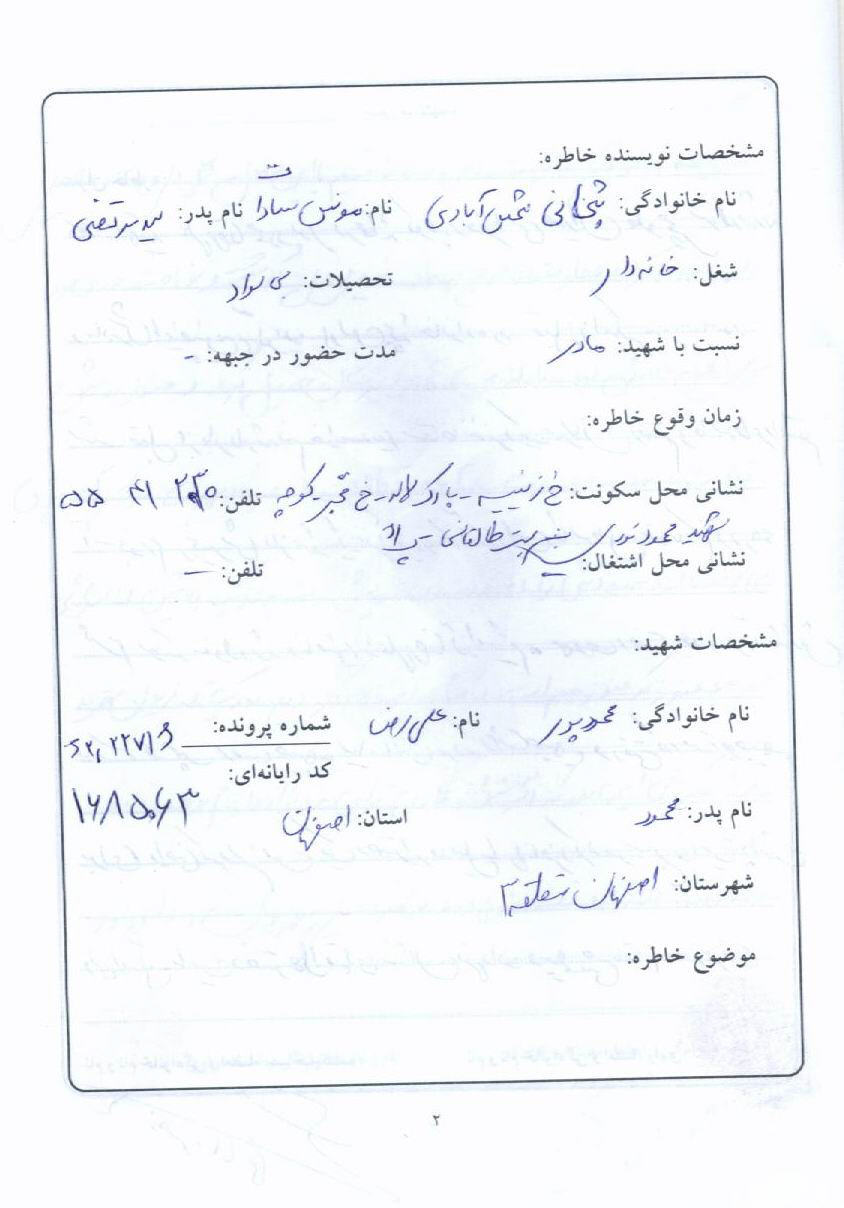 مشخصات نویسنده خاطره:
نام خانوادگی: شمس آبادی نام: مونس سادات نام پدر: سید مرتضی
شغل: خانه دار تحصیلات: بی سواد
نسبت با شهید: مادر مدت حضور در جبهه: -
زمان وقوع خاطره:
نشانی محل سکونت: خ زینبیه - پارک لاله - خ فجر - کوچه تلفن:
شهید محمود نوری بن بست طالقانی - پلاک
نشانی محل اشتغال: – تلفن: –
مشخصات شهید:
نام خانوادگی: محمودپور نام: علی رضا شماره پرونده:
کد رایانه‌ای:
نام پدر: محمود استان: اصفهان
شهرستان: اصفهان منطقه ۳
موضوع خاطره:
۲